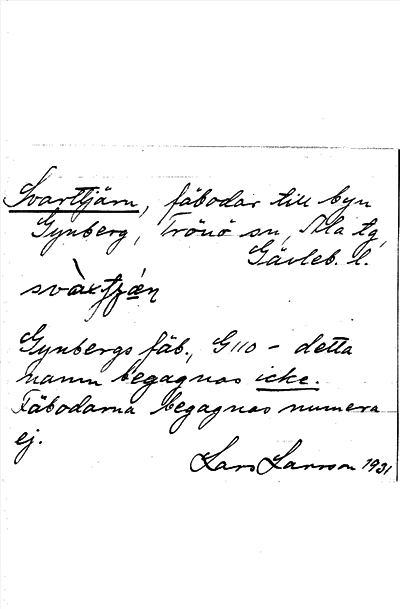 Svarttjärn, fäbodar till byn
Gynberg, Trönö sn, Ala tg,
Gävleb. l.
svàxtjǽn
Gynbergs fäb., G110 – detta
namn begagnas icke.
Fäbodarna begagnas numera
ej.
Lars Larsson 1931